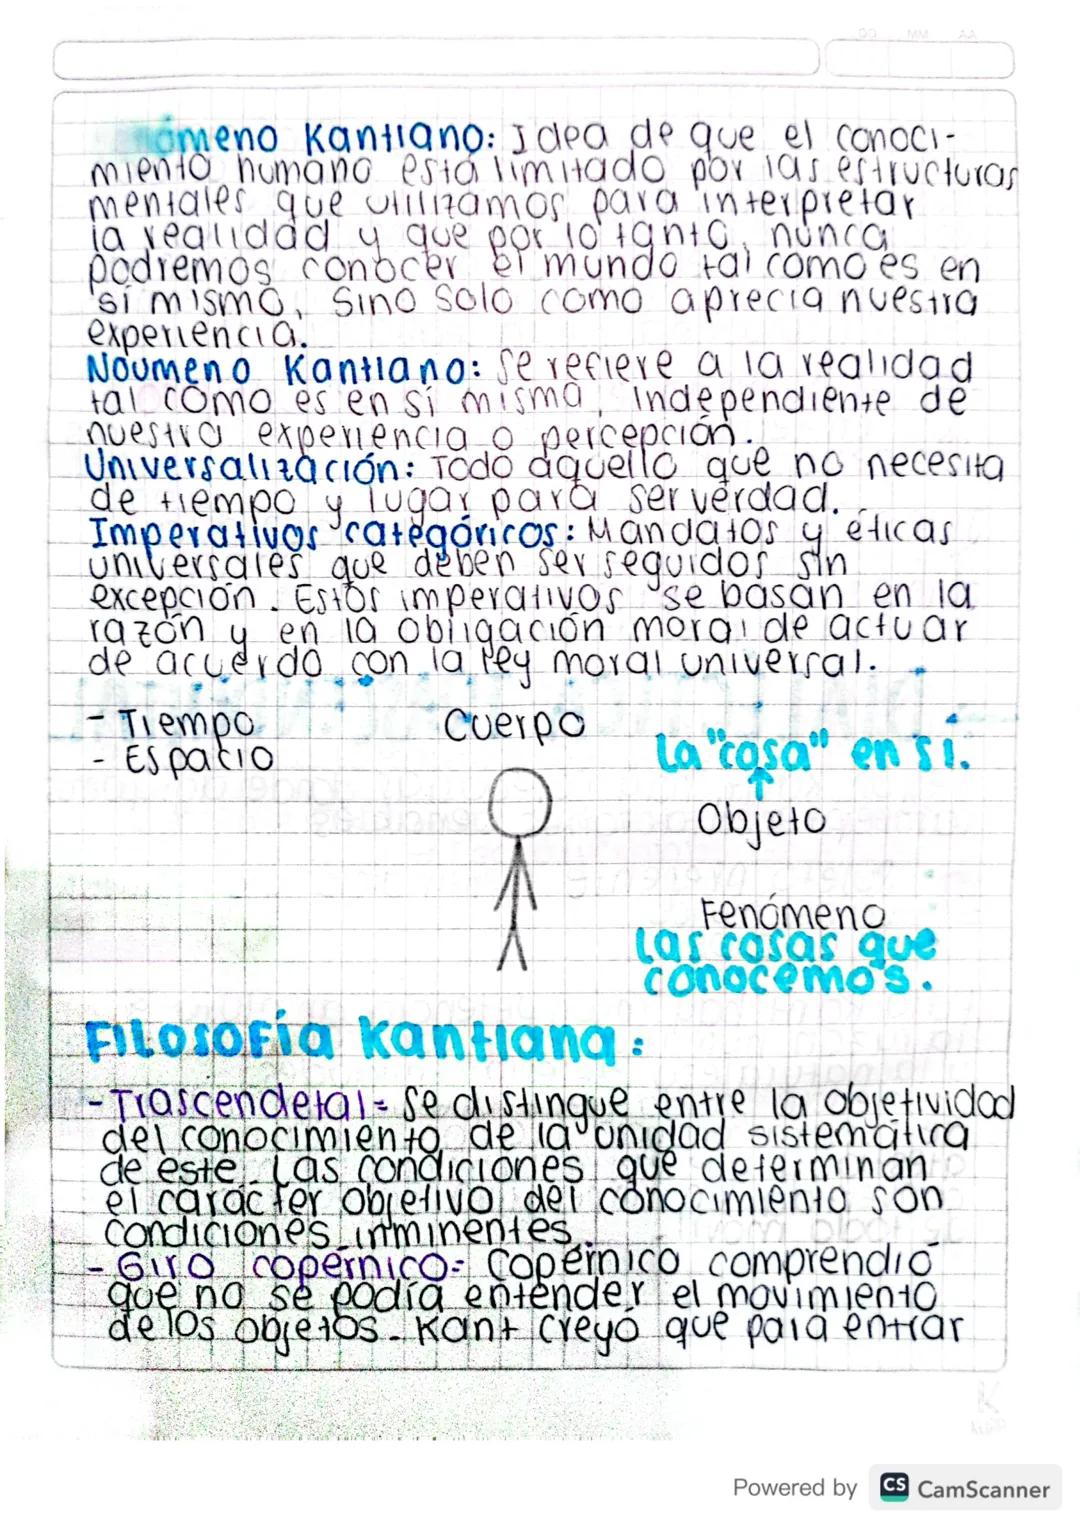 DD MM AA
ómeno Kantiano: Idea de que el conoci-
miento humano está limitado por las estructuras
mentales que utilizamos para interpretar
la realidad y que por lo tanto, nunca
podremos conocer el mundo tal como es en
si mismo, Sino Solo como aprecia nuestra
experiencia.
Noumeno Kantiano: Se refiere a la realidad
tal como es en sí misma, Independiente de
nuestra experiencia o percepción.
Universalización: Todo aquello que no necesita
de tiempo y lugar para ser verdad.
Imperativos categóricos: Mandatos y éticas
universales que deben ser seguidos sin
excepción. Estos imperativos se basan en la
razón y en la obligación moral de actuar
de acuerdo con la ley moral universal.
- Tiempo Cuerpo
- Espacio
La "cosa" en sí.
Objeto
Fenómeno
Las cosas que
conocemos.
Filosofía Kantiana:
- Trascendetal= Se distingue entre la objetividad
del conocimiento de la unidad sistemática
de este. Las condiciones que determinan
el carácter objetivo del conocimiento son
condiciones inminentes.
- Giro copérnico= Copérnico comprendió
que no se podía entender el movimiento
de los objetos. Kant creyó que para entrar
Powered by CS CamScanner